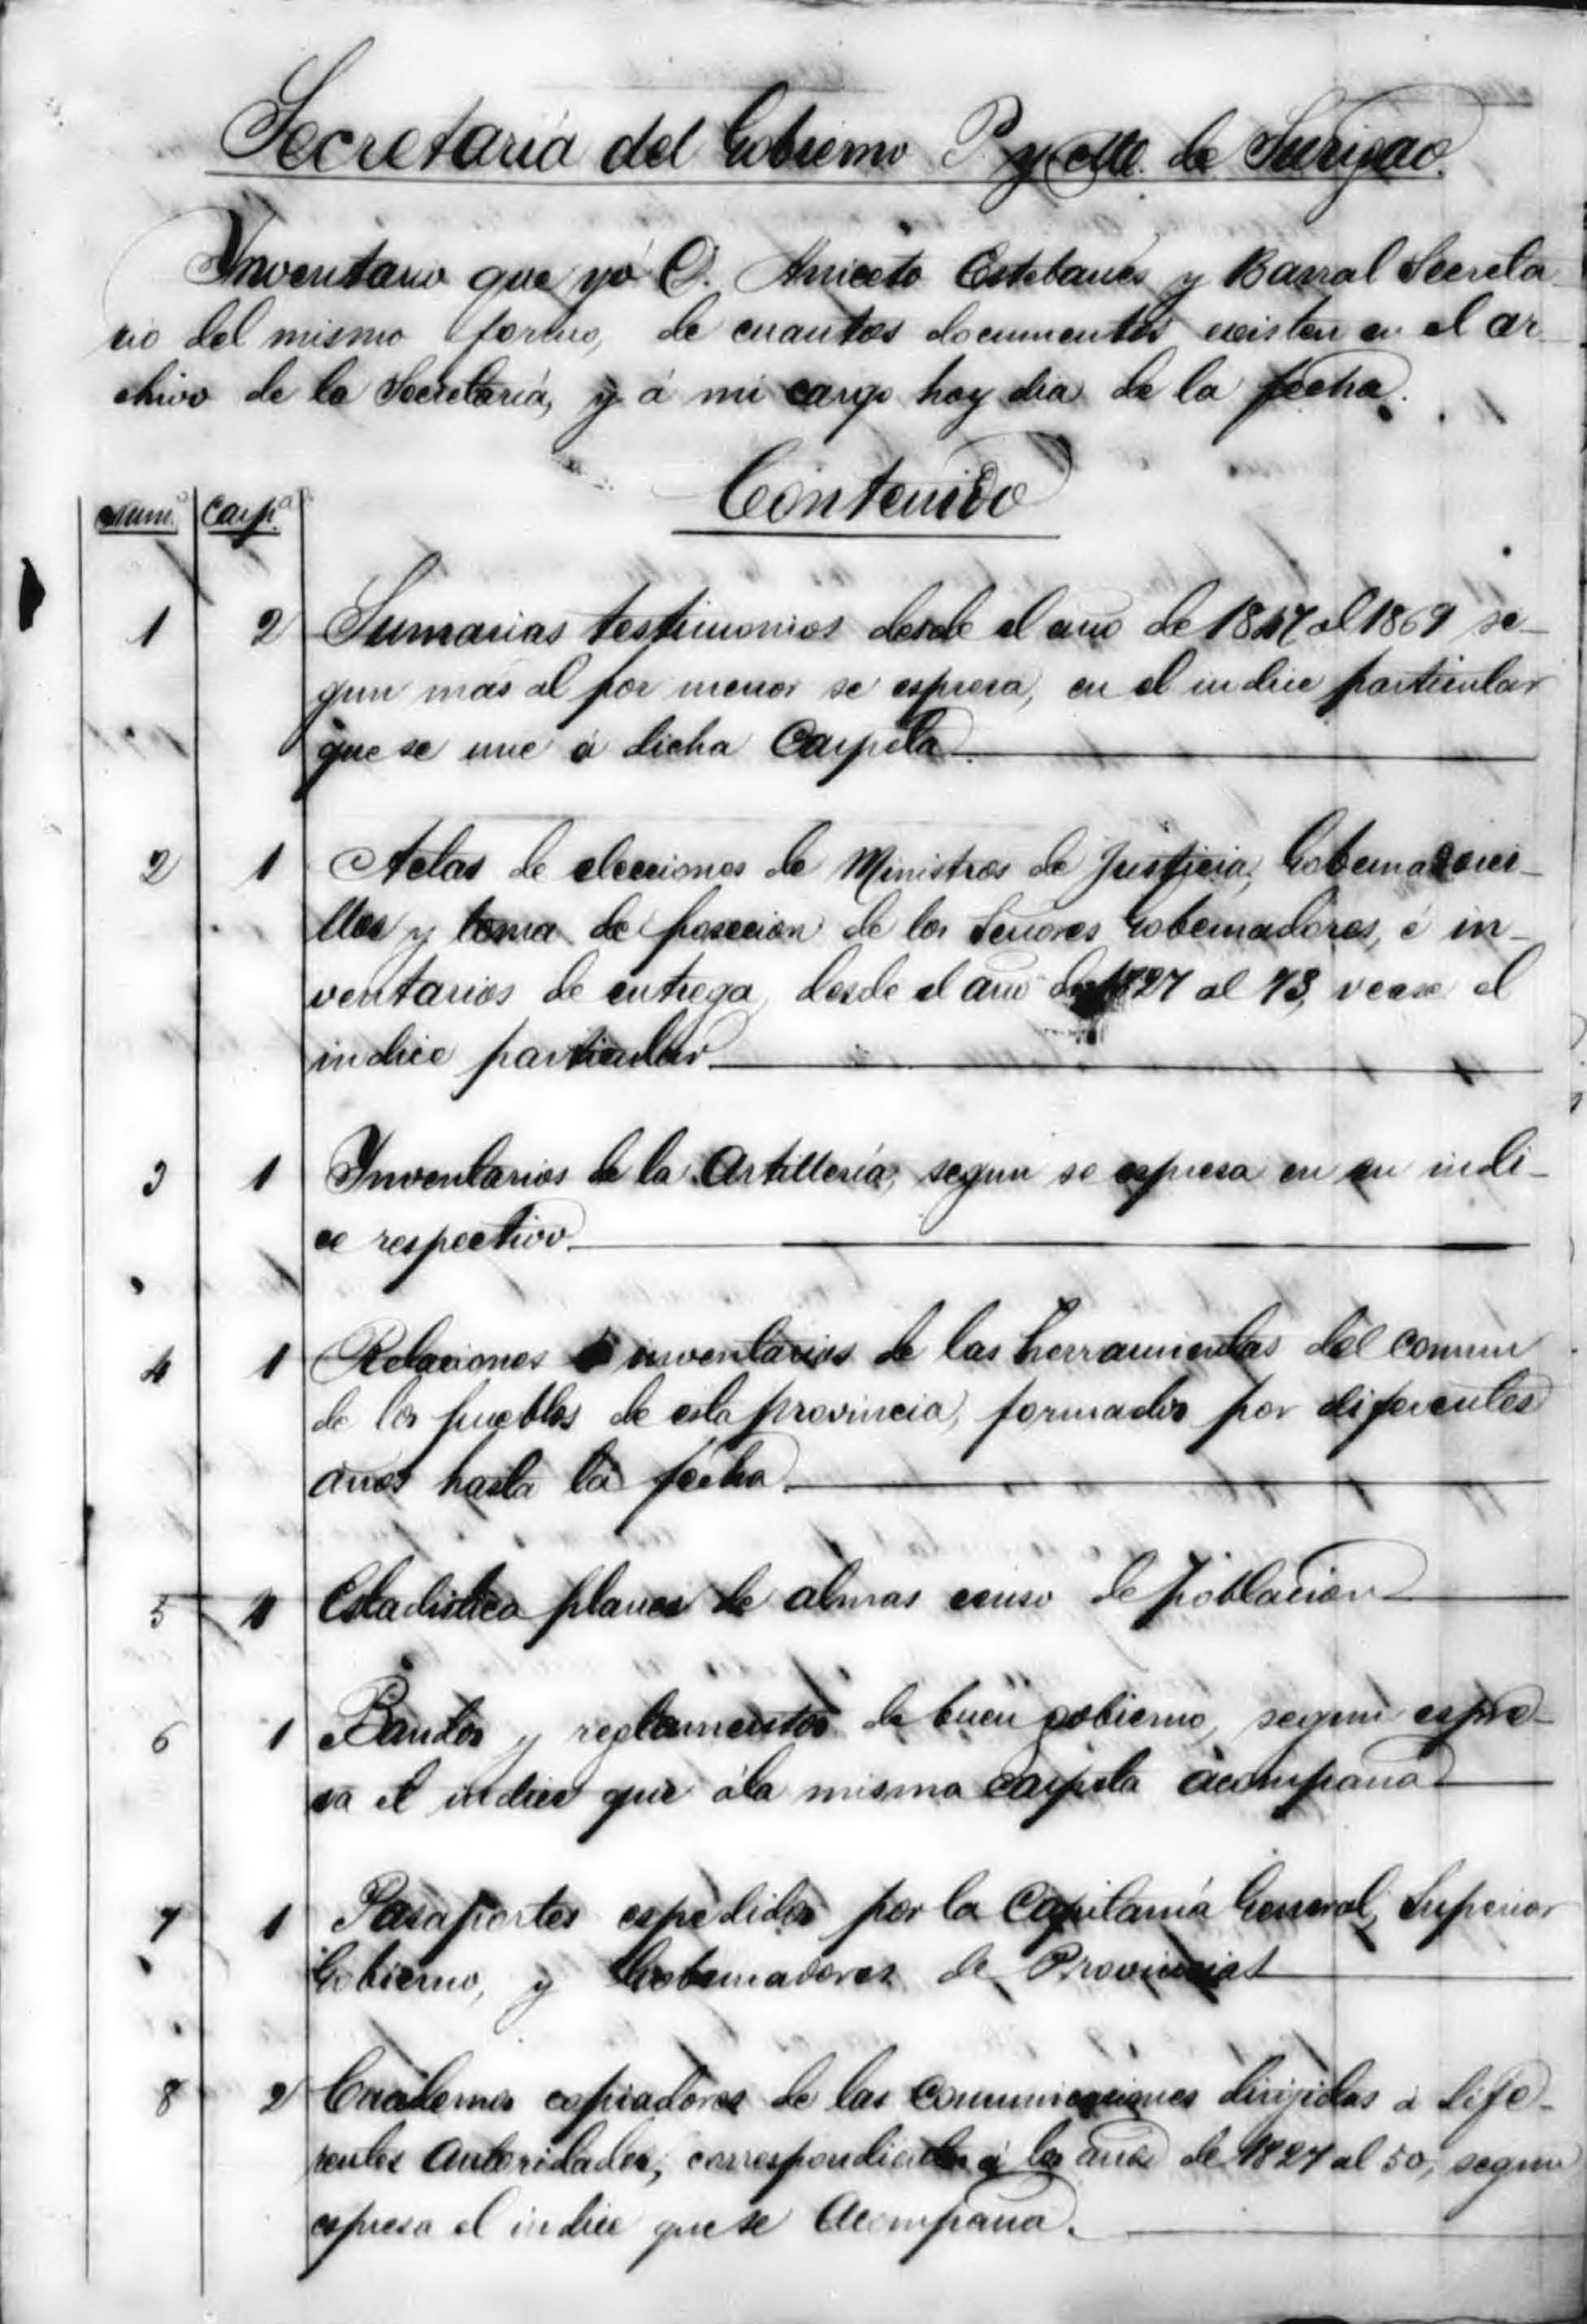 Secretaría del Gobierno P. y M. de Surigao.
Ynventario que yó D. Aniceto Estebanés y Barral Secreta-
rio del mismo formo, de cuantos documentos existen en el ar-
chivo de la Secretaría, y á mi cargo hoy dia de la fecha.
Contenido
Num.º Carp.ª
1 2 Sumarias testimonios desde el año de 1847 al 1869 se-
gun mas al por menor se espresa, en el indice particular
que se une á dicha Carpeta
2 1 Actas de elecciones de Ministros de Justicia, Gobernadorci-
llos y toma de posecion de los Señores Gobernadores, é in-
ventarios de entrega, desde el año de 1827 al 73, vease el
indice particular
3 1 Ynventarios de la Artillería, segun se espresa en su indi-
ce respectivo
4 1 Relaciones é inventarios de las herramientas del comun
de los pueblos de esta provincia, formados por diferentes
años hasta la fecha.
5 4 Estadistica planes de almas censo de poblacion
6 1 Bandos y reglamentos de buen gobierno, segun espre-
sa el indice que á la misma carpeta acompaña
7 1 Pasaportes espedidos por la Capitanía General, Superior
Gobierno, y Gobernadores de Provincias
8 2 Cuadernos copiadores de las comunicaciones dirijidas á dife-
rentes autoridades, correspondientes á los años de 1827 al 50, segun
espresa el indice que se acompaña.